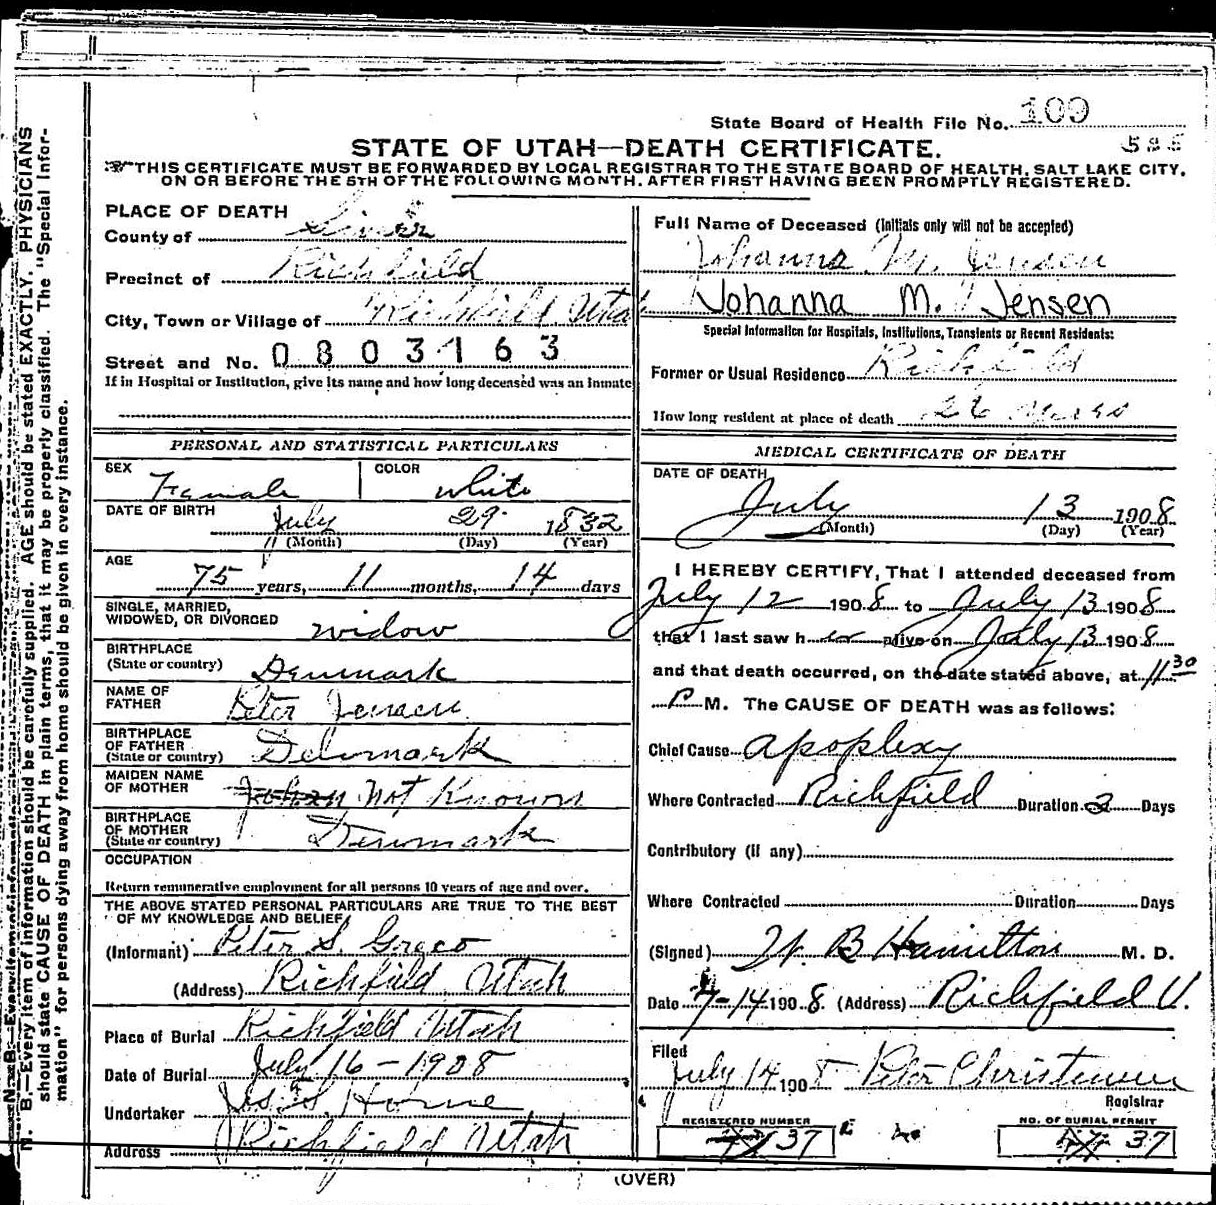 State Board of Health File No. 109
STATE OF UTAH—DEATH CERTIFICATE.
THIS CERTIFICATE MUST BE FORWARDED BY LOCAL REGISTRAR TO THE STATE BOARD OF HEALTH, SALT LAKE CITY,
ON OR BEFORE THE 5TH OF THE FOLLOWING MONTH, AFTER FIRST HAVING BEEN PROMPTLY REGISTERED.
PLACE OF DEATH
County of Sevier
Precinct of Richfield
City, Town or Village of Richfield Utah
Street and No. 0803163
If in Hospital or Institution, give its name and how long deceased was an inmate
PERSONAL AND STATISTICAL PARTICULARS
SEX Female COLOR white
DATE OF BIRTH July 29 1832
(Month) (Day) (Year)
AGE
75 years, 11 months, 14 days
SINGLE, MARRIED,
WIDOWED, OR DIVORCED widow
BIRTHPLACE
(State or country) Denmark
NAME OF
FATHER Peter Jensen
BIRTHPLACE
OF FATHER
(State or country) Denmark
MAIDEN NAME
OF MOTHER Not Known
BIRTHPLACE
OF MOTHER
(State or country) Denmark
OCCUPATION
Return remunerative employment for all persons 10 years of age and over.
THE ABOVE STATED PERSONAL PARTICULARS ARE TRUE TO THE BEST
OF MY KNOWLEDGE AND BELIEF
(Informant) Peter S.
(Address) Richfield Utah
Place of Burial Richfield Utah
Date of Burial July 16-1908
Undertaker Horne
Address Richfield Utah
Full Name of Deceased (Initials only will not be accepted)
Johanna M. Jensen
Johanna M. Jensen
Special Information for Hospitals, Institutions, Transients or Recent Residents:
Former or Usual Residence Richfield
How long resident at place of death 26
MEDICAL CERTIFICATE OF DEATH
DATE OF DEATH
July 13 1908
(Month) (Day) (Year)
I HEREBY CERTIFY, That I attended deceased from
July 12 1908 to July 13 1908
that I last saw her alive on July 13 1908
and that death occurred, on the date stated above, at 11 30
P M. The CAUSE OF DEATH was as follows:
Chief Cause apoplexy
Where Contracted Richfield Duration 2 Days
Contributory (if any)
Where Contracted Duration Days
(Signed) W. B Hamilton M. D.
Date 7-14 1908 (Address) Richfield U.
Filed
July 14 1908 Peter Christensen
Registrar
REGISTERED NUMBER
37
NO. OF BURIAL PERMIT
37
(OVER)
N. B.—Every item of information should be carefully supplied. AGE should be stated EXACTLY. PHYSICIANS
should state CAUSE OF DEATH in plain terms, that it may be properly classified. The "Special Infor-
mation" for persons dying away from home should be given in every instance.